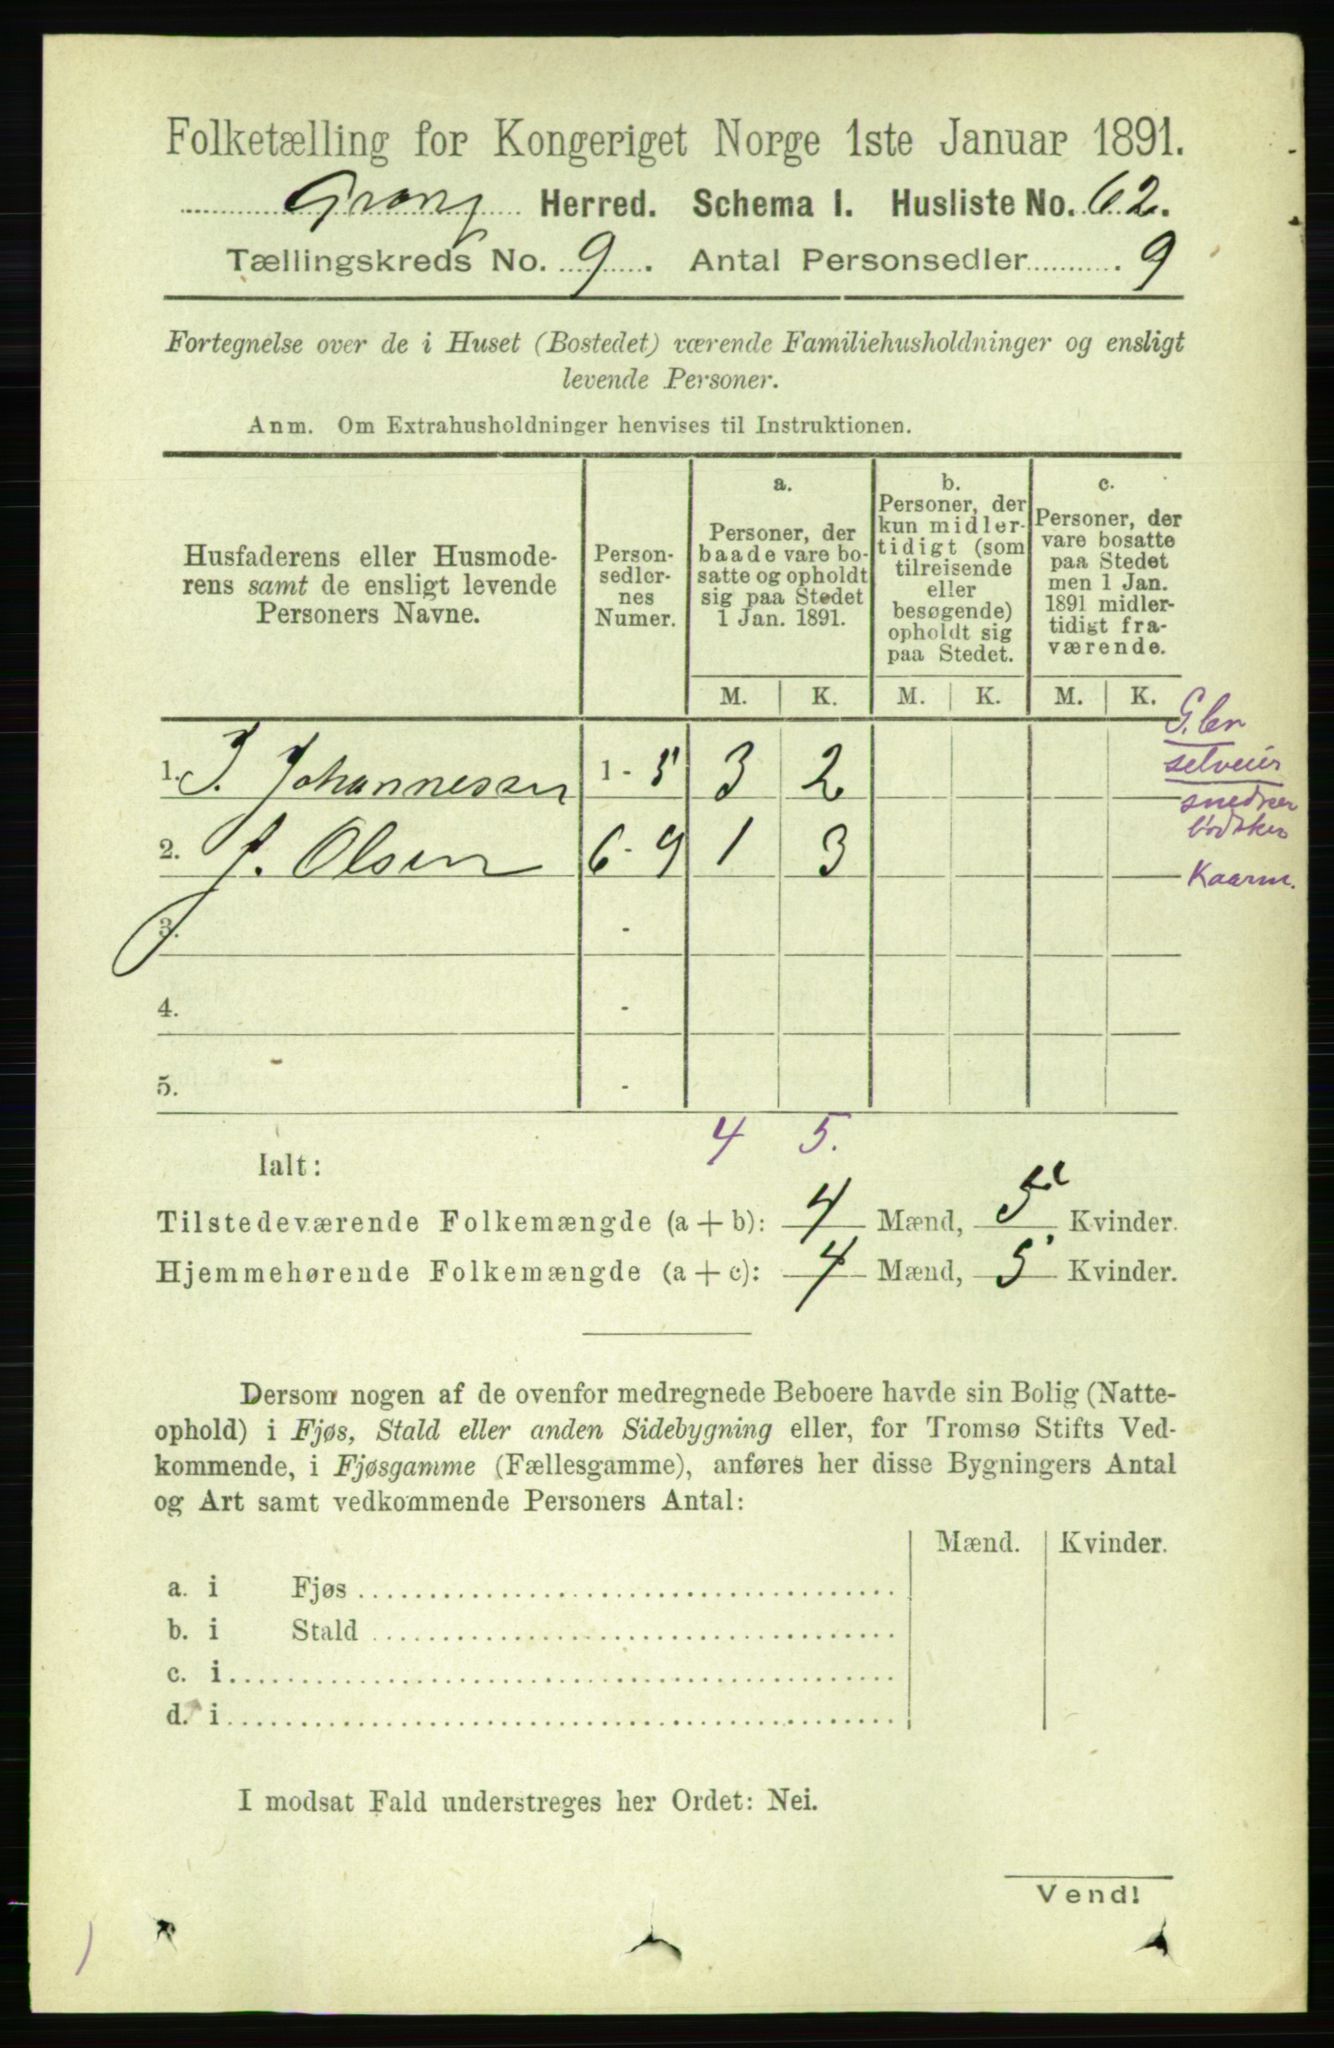 Folketælling for Kongeriget Norge 1ste Januar 1891.
Grong Herred. Schema I. Husliste No. 62.
Tællingskreds No. 9. Antal Personsedler 9
Fortegnelse over de i Huset (Bostedet) værende Familiehusholdninger og ensligt
levende Personer.
Anm. Om Extrahusholdninger henvises til Instruktionen.
Husfaderens eller Husmode-
rens samt de ensligt levende
Personers Navne.
Person-
sedler-
nes
Numer.
a.
Personer, der
baade vare bo-
satte og opholdt
sig paa Stedet
1 Jan. 1891.
b.
Personer, der
kun midler-
tidigt (som
tilreisende
eller
besøgende)
opholdt sig
paa Stedet.
c.
Personer, der
vare bosatte
paa Stedet
men 1 Jan.
1891 midler-
tidigt fra-
værende.
M. K. M. K. M. K.
1. J. Johannessen 1 - 5 3 2
2. J. Olsen 6 - 9 1 3
3. -
4. -
5. -
selveier
snedker
bødker
Kaarm.
4 5.
Ialt:
Tilstedeværende Folkemængde (a + b): 4 Mænd, 5 Kvinder.
Hjemmehørende Folkemængde (a + c): 4 Mænd, 5 Kvinder.
Dersom nogen af de ovenfor medregnede Beboere havde sin Bolig (Natte-
ophold) i Fjøs, Stald eller anden Sidebygning eller, for Tromsø Stifts Ved-
kommende, i Fjøsgamme (Fællesgamme), anføres her disse Bygningers Antal
og Art samt vedkommende Personers Antal:
Mænd. Kvinder.
a. i Fjøs
b. i Stald
c. i
d. i
I modsat Fald understreges her Ordet: Nei.
Vend!